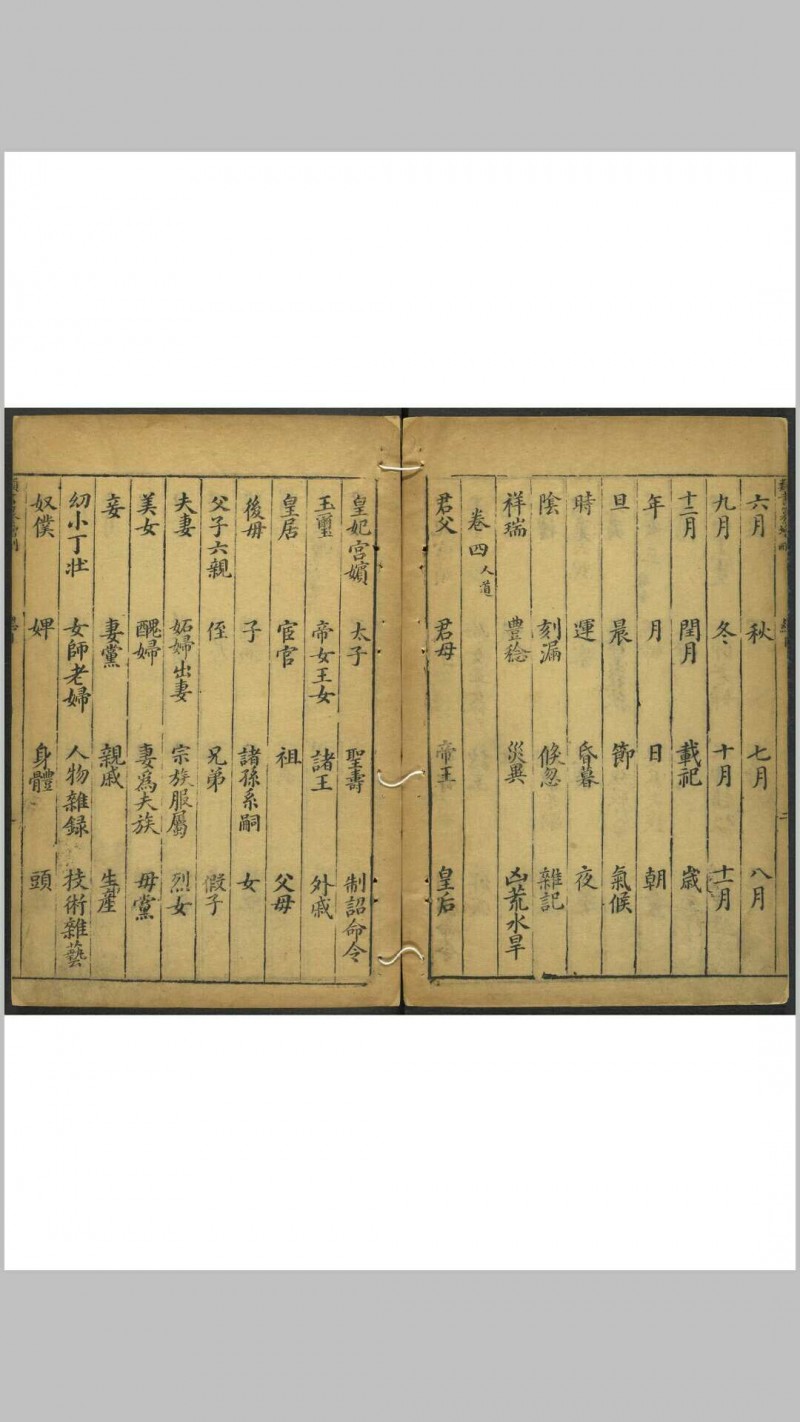 六月 秋 七月 八月
九月 冬 十月 十一月
十二月 閏月 載祀 歲
年 月 日 朝
旦 晨 節 氣候
時 運 昏暮 夜
陰 刻漏 倐忽 雜記
祥瑞 豊稔 災異 凶荒水旱
卷四 人道
君父 君母 帝王 皇后
皇妃宫嬪 太子 聖壽 制詔命令
玉璽 帝女王女 諸王 外戚
皇居 宦官 祖 父母
後母 子 諸孫系嗣 女
父子六親 侄 兄弟 假子
夫妻 妬婦出妻 宗族服屬 烈女
美女 醜婦 妻爲夫族 母黨
妾 妻黨 親戚 生產
幼小丁壯 女師老婦 人物雜録 技術雜藝
奴僕 婢 身體 頭